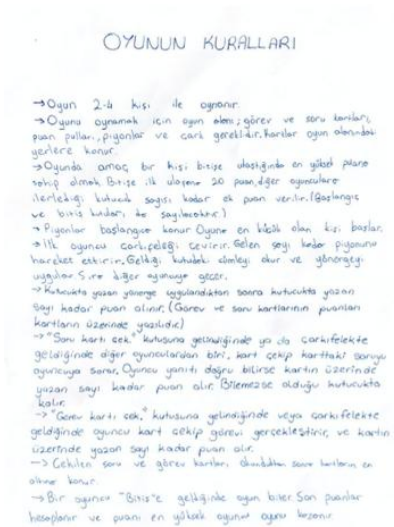 OYUNUN KURALLARI
→ Oyun 2-4 kişi ile oynanır.
→ Oyunu oynamak için oyun alanı; görev ve soru kartları,
puan pulları, piyonlar ve çark gereklidir. Kartlar oyun alanındaki
yerlere konur.
→ Oyunda amaç bir kişi bitişe ulaştığında en yüksek puana
sahip olmak. Bitişe ilk ulaşana 20 puan, diğer oyunculara
ilerlediği kutucuk sayısı kadar ek puan verilir. (Başlangıç
ve bitiş kutuları da sayılacaktır.)
→ Piyonlar başlangıca konur. Oyuna en küçük olan kişi başlar.
→ İlk oyuncu çarkıfeleği çevirir. Gelen sayı kadar piyonunu
hareket ettirir. Geldiği kutudaki cümleyi okur ve yönergeyi
uygular. Sıra diğer oyuncuya geçer.
→ Kutucukta yazan yönerge uygulandıktan sonra kutucukta yazan
sayı kadar puan alınır. (Görev ve soru kartlarının puanları
kartların üzerinde yazılıdır.)
→ "Soru kartı çek." kutusuna gelindiğinde ya da çarkıfelekte
geldiğinde diğer oyunculardan biri, kart çekip karttaki soruyu
oyuncuya sorar. Oyuncu yanıtı doğru bilirse kartın üzerinde
yazan sayı kadar puan alır. Bilemezse olduğu kutucukta
kalır.
→ "Görev kartı çek." kutusuna gelindiğinde veya çarkıfelekte
geldiğinde oyuncu kart çekip görevi gerçekleştirir, ve kartın
üzerinde yazan sayı kadar puan alır.
→ Çekilen soru ve görev kartları okunduktan sonra kartların en
altına konur.
→ Bir oyuncu "Bitiş"e geldiğinde oyun biter. Son puanlar
hesaplanır ve puanı en yüksek oyuncu oyunu kazanır.